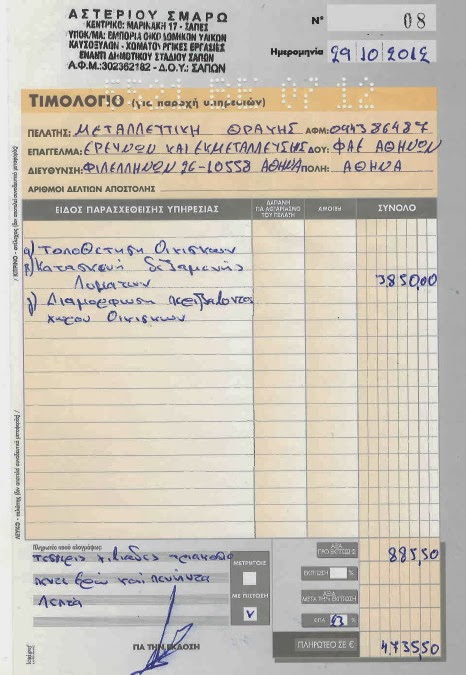 ΑΣΤΕΡΙΟΥ ΣΜΑΡΩ
ΚΕΝΤΡΙΚΟ: ΜΑΡΙΝΑΚΗ 17 - ΣΑΠΕΣ
ΥΠΟΚ/ΜΑ: ΕΜΠΟΡΙΑ ΟΙΚΟΔΟΜΙΚΩΝ ΥΛΙΚΩΝ
ΚΑΥΣΟΞΥΛΩΝ - ΧΩΜΑΤΟΥΡΓΙΚΕΣ ΕΡΓΑΣΙΕΣ
ΕΝΑΝΤΙ ΔΗΜΟΤΙΚΟΥ ΣΤΑΔΙΟΥ ΣΑΠΩΝ
Α.Φ.Μ.: 302362182 - Δ.Ο.Υ.: ΣΑΠΩΝ
Ν° 08
Ημερομηνία 29 10 2012
ΤΙΜΟΛΟΓΙΟ (για παροχή υπηρεσιών)
ΠΕΛΑΤΗΣ: ΜΕΤΑΛΛΕΥΤΙΚΗ ΘΡΑΚΗΣ ΑΦΜ: 094386487
ΕΠΑΓΓΕΛΜΑ: ΕΡΕΥΝΩΝ ΚΑΙ ΕΚΜΕΤΑΛΛΕΥΣΗΣ ΔΟΥ: ΦΑΕ ΑΘΗΝΩΝ
ΔΙΕΥΘΥΝΣΗ: ΦΙΛΕΛΛΗΝΩΝ 26-10558 ΑΘΗΝΑ ΠΟΛΗ: ΑΘΗΝΑ
ΑΡΙΘΜΟΙ ΔΕΛΤΙΩΝ ΑΠΟΣΤΟΛΗΣ
ΕΙΔΟΣ ΠΑΡΑΣΧΕΘΕΙΣΗΣ ΥΠΗΡΕΣΙΑΣ
ΔΑΠΑΝΗ ΓΙΑ ΛΟΓΑΡΙΑΣΜΟ ΤΟΥ ΠΕΛΑΤΗ
ΑΜΟΙΒΗ
ΣΥΝΟΛΟ
α) Τοποθέτηση Οικισκων
β) Κατασκευή δεξαμενής
Λυματων 3850,00
γ) Διαμόρφωση περιβαλοντος
χωρου Οικισκων
Πληρωτέο ποσό ολογράφως:
τεσσερις χιλιαδες
και πενηντα
Λεπτα
ΜΕΤΡΗΤΟΙΣ
ΜΕ ΠΙΣΤΩΣΗ V
ΑΞΙΑ ΠΡΟ ΕΚΠΤΩΣΗΣ 885,50
ΕΚΠΤΩΣΗ %
ΑΞΙΑ ΜΕΤΑ ΤΗΝ ΕΚΠΤΩΣΗ
ΦΠΑ 23 %
ΓΙΑ ΤΗΝ ΕΚΔΟΣΗ
ΠΛΗΡΩΤΕΟ ΣΕ € 4.735,50